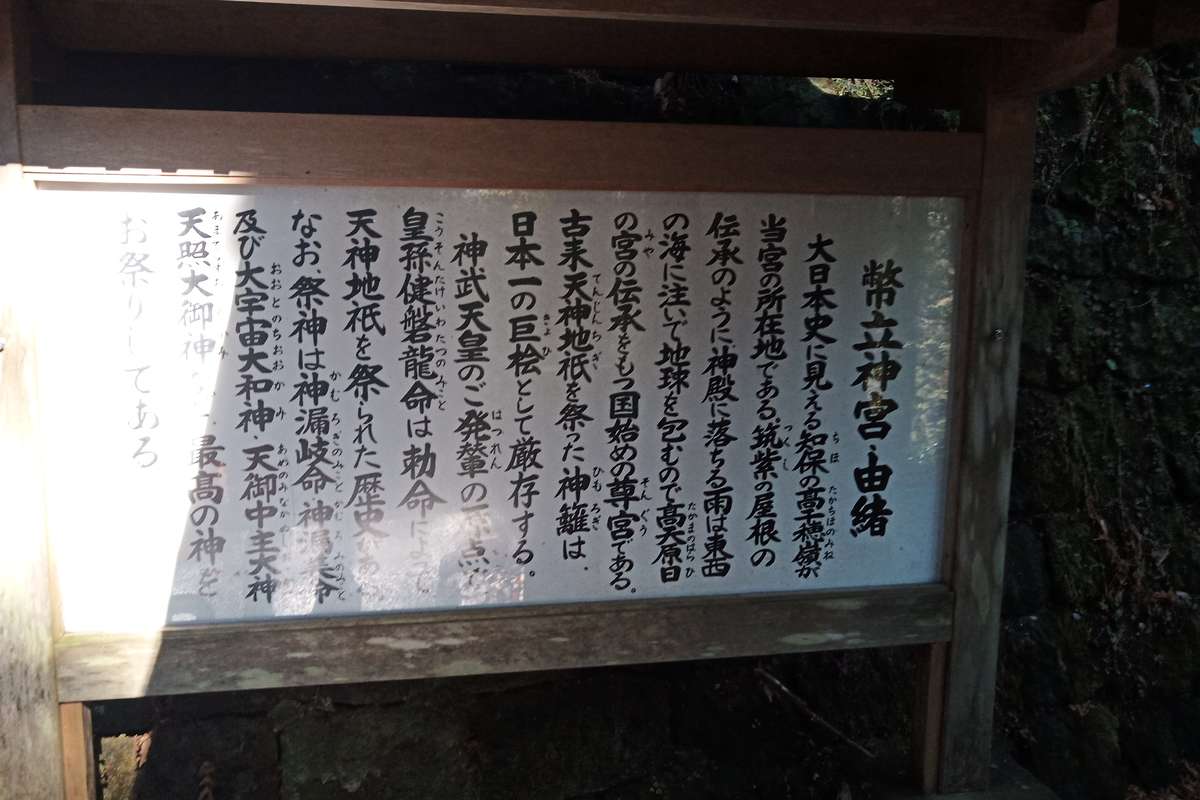 幣立神宮・由緒
大日本史に見える知保の高千穂嶺が
当宮の所在地である。筑紫の屋根の
伝承のように、神殿に落ちる雨は東西
の海に注いで地球を包むので、高天原日
の宮の伝承をもつ国始めの尊宮である。
古来天神地祇を祭った神籬は、
日本一の巨桧として厳存する。
神武天皇のご発輦の原点で
皇孫健磐龍命は勅命によって
天神地祇を祭られた歴史がある
なお、祭神は神漏岐命・神漏美命
及び大宇宙大和神・天御中主大神
天照大御神 最高の神を
お祭りしてある